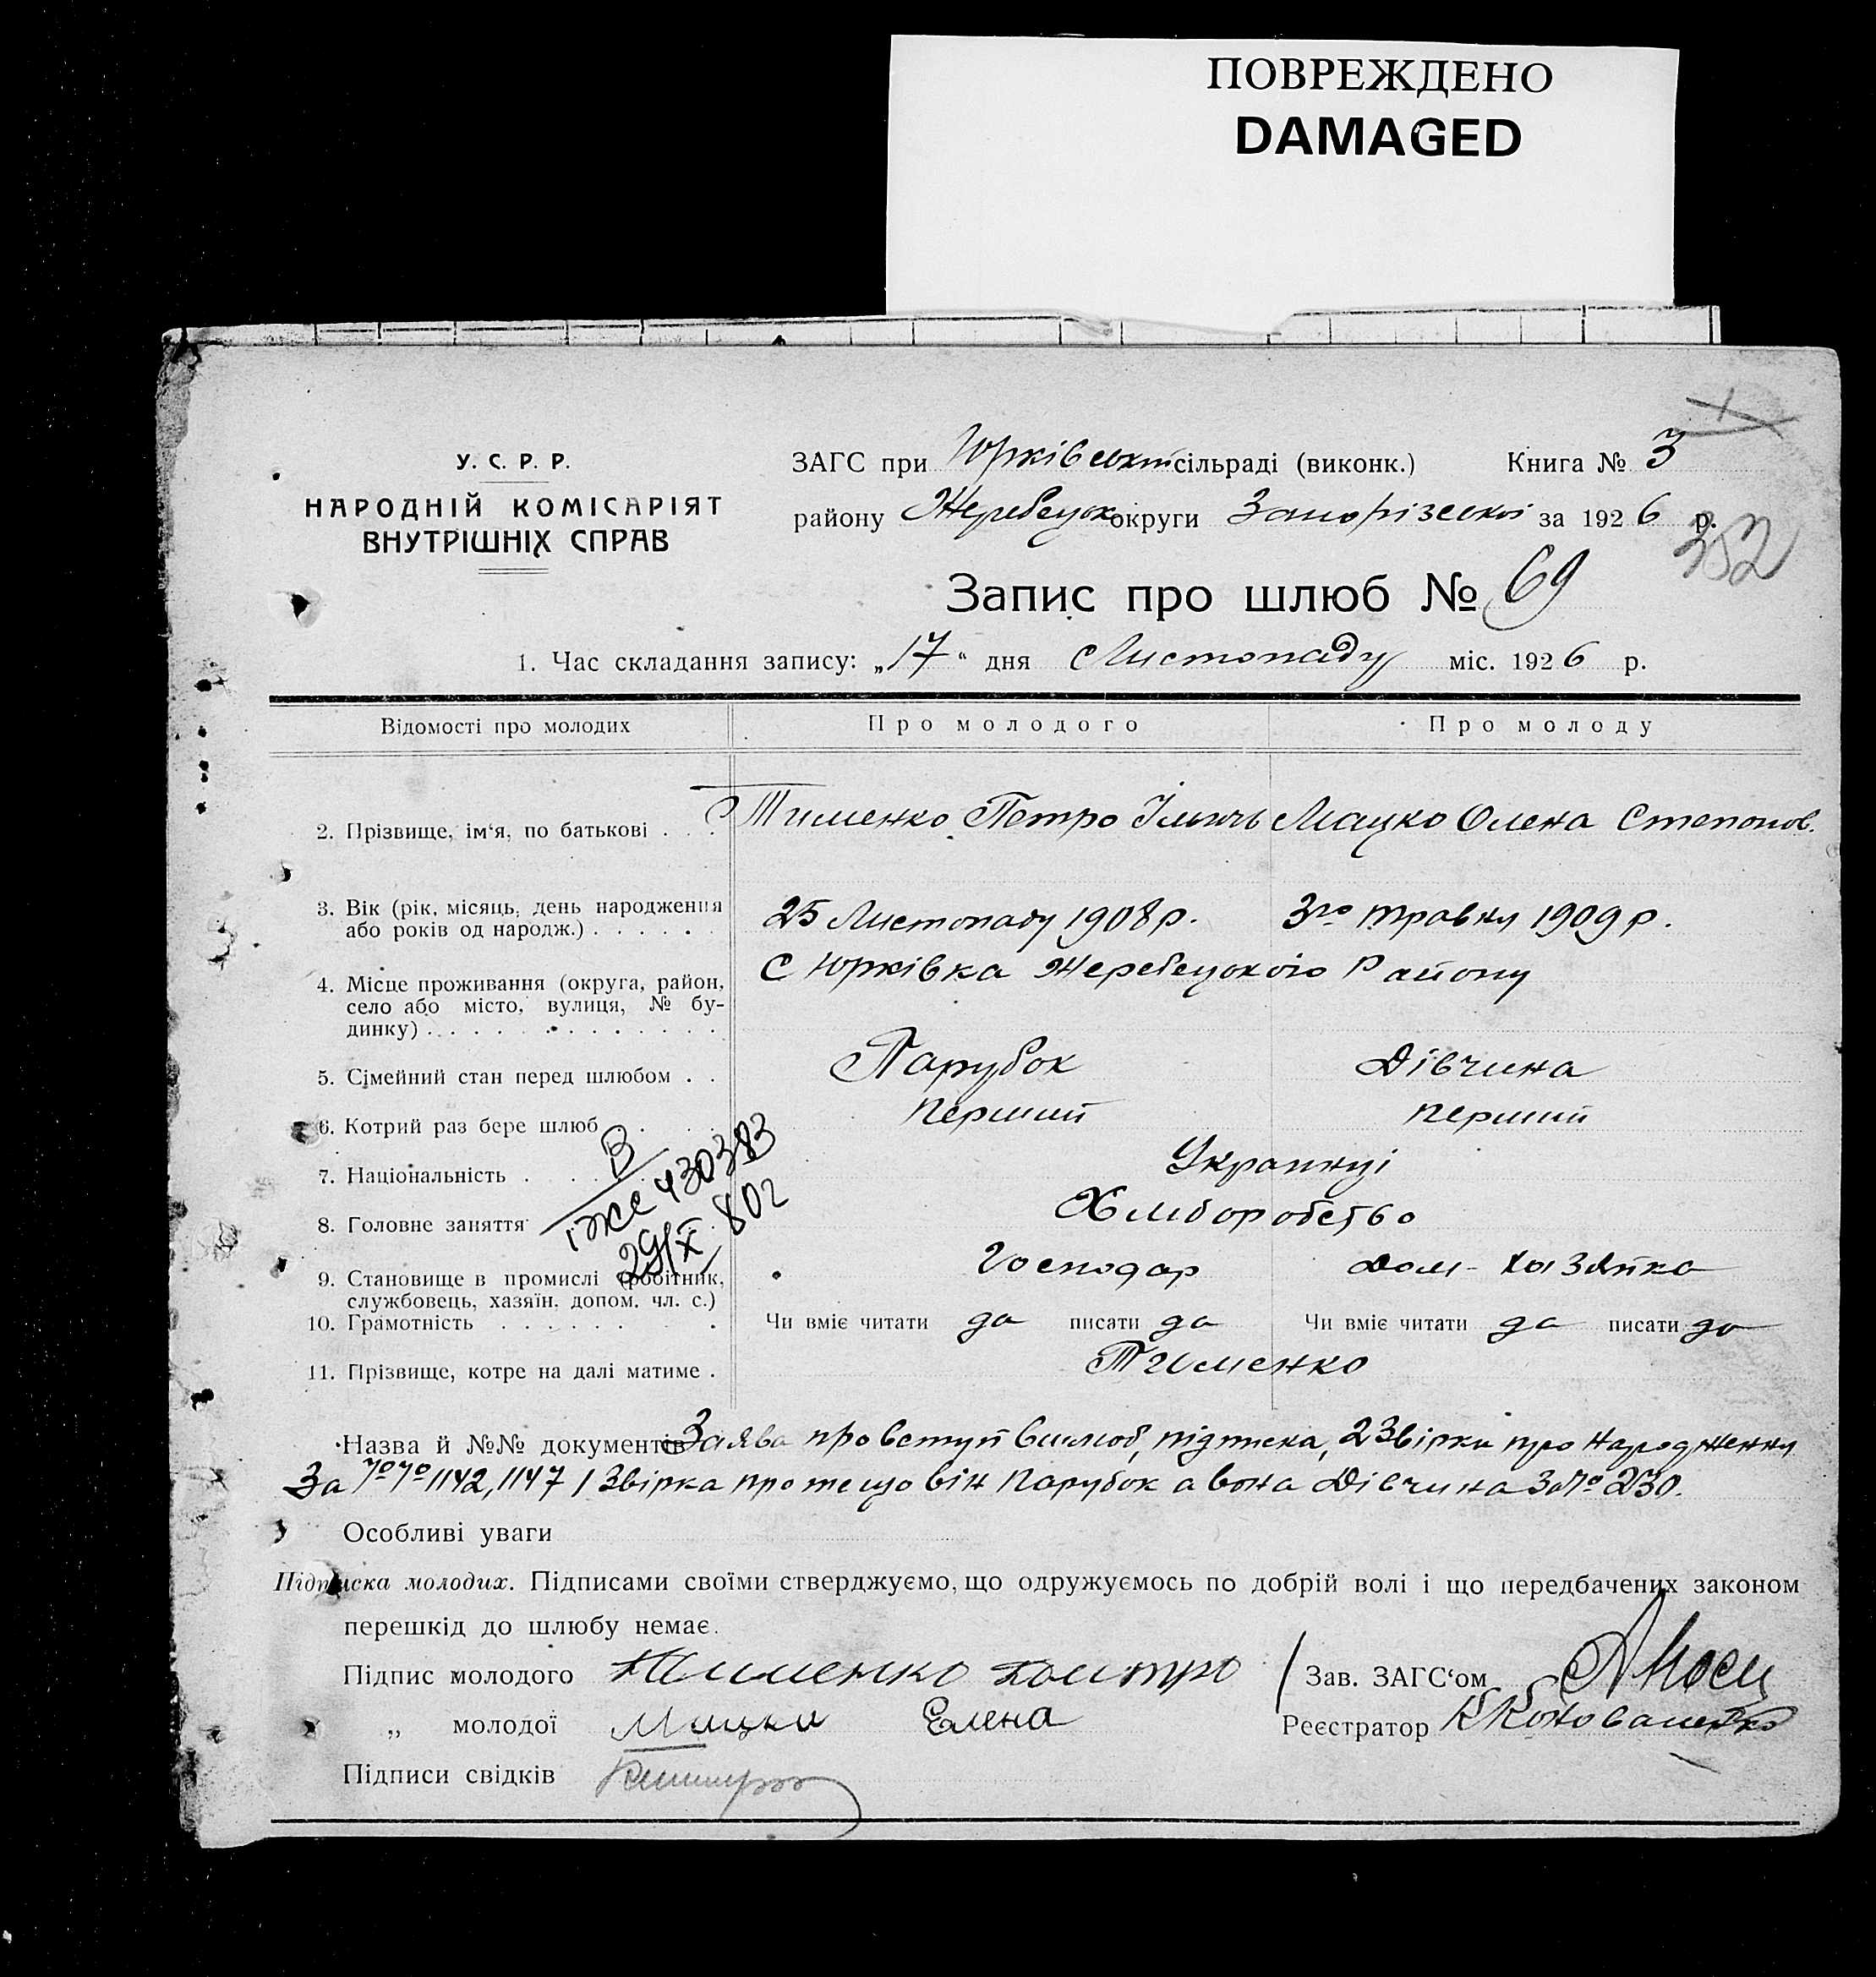 ПОВРЕЖДЕНО
DAMAGED
У. С. Р. Р.
НАРОДНІЙ КОМІСАРІЯТ
ВНУТРІШНІХ СПРАВ
ЗАГС при Юрківській сільраді (виконк.) Книга № 3
району Жеребецьк округи Запорізської за 1926 р.
352
Запис про шлюб № 69
1. Час складання запису: „17“ дня Листопаду міс. 1926 р.
Відомості про молодих Про молодого Про молоду
2. Прізвище, ім‘я, по батькові . . . Тименко Петро Ільичь Мацко Олена Степонов.
3. Вік (рік, місяць, день народження
або років од народж.) . . . . . . 25 Листопаду 1908 р. 3го травня 1909 р.
4. Місце проживання (округа, район, с Юрківка Жеребецького Району
село або місто, вулиця, № бу-
динку) . . . . . . . . . . . . .
5. Сімейний стан перед шлюбом . . Парубок Дівчина
6. Котрий раз бере шлюб . . . перший перший
7. Національність . . . . Українці
8. Головне заняття Хліборобство
В
ІЖС 430383
29/X 80г
9. Становище в промислі (робітник, Господар Дом-хозяйка
службовець, хазяїн, допом. чл. с.)
10. Грамотність . . . . . . . . Чи вміє читати да писати да Чи вміє читати да писати да
11. Прізвище, котре на далі матиме . Тименко
Назва й №№ документів Заява про вступ в шлюб, підписка, 2 Звірки про народження
За №№ 1142, 1147 / Звірка про те що він парубок а вона Дівчина За № 230.
Особливі уваги
Підписка молодих. Підписами своїми стверджуємо, що одружуємось по добрій волі і що передбачених законом
перешкід до шлюбу немає.
Підпис молодого Тименко Зав. ЗАГС‘ом
„ молодої Мацко Елена Реєстратор К Коноваленко
Підписи свідків